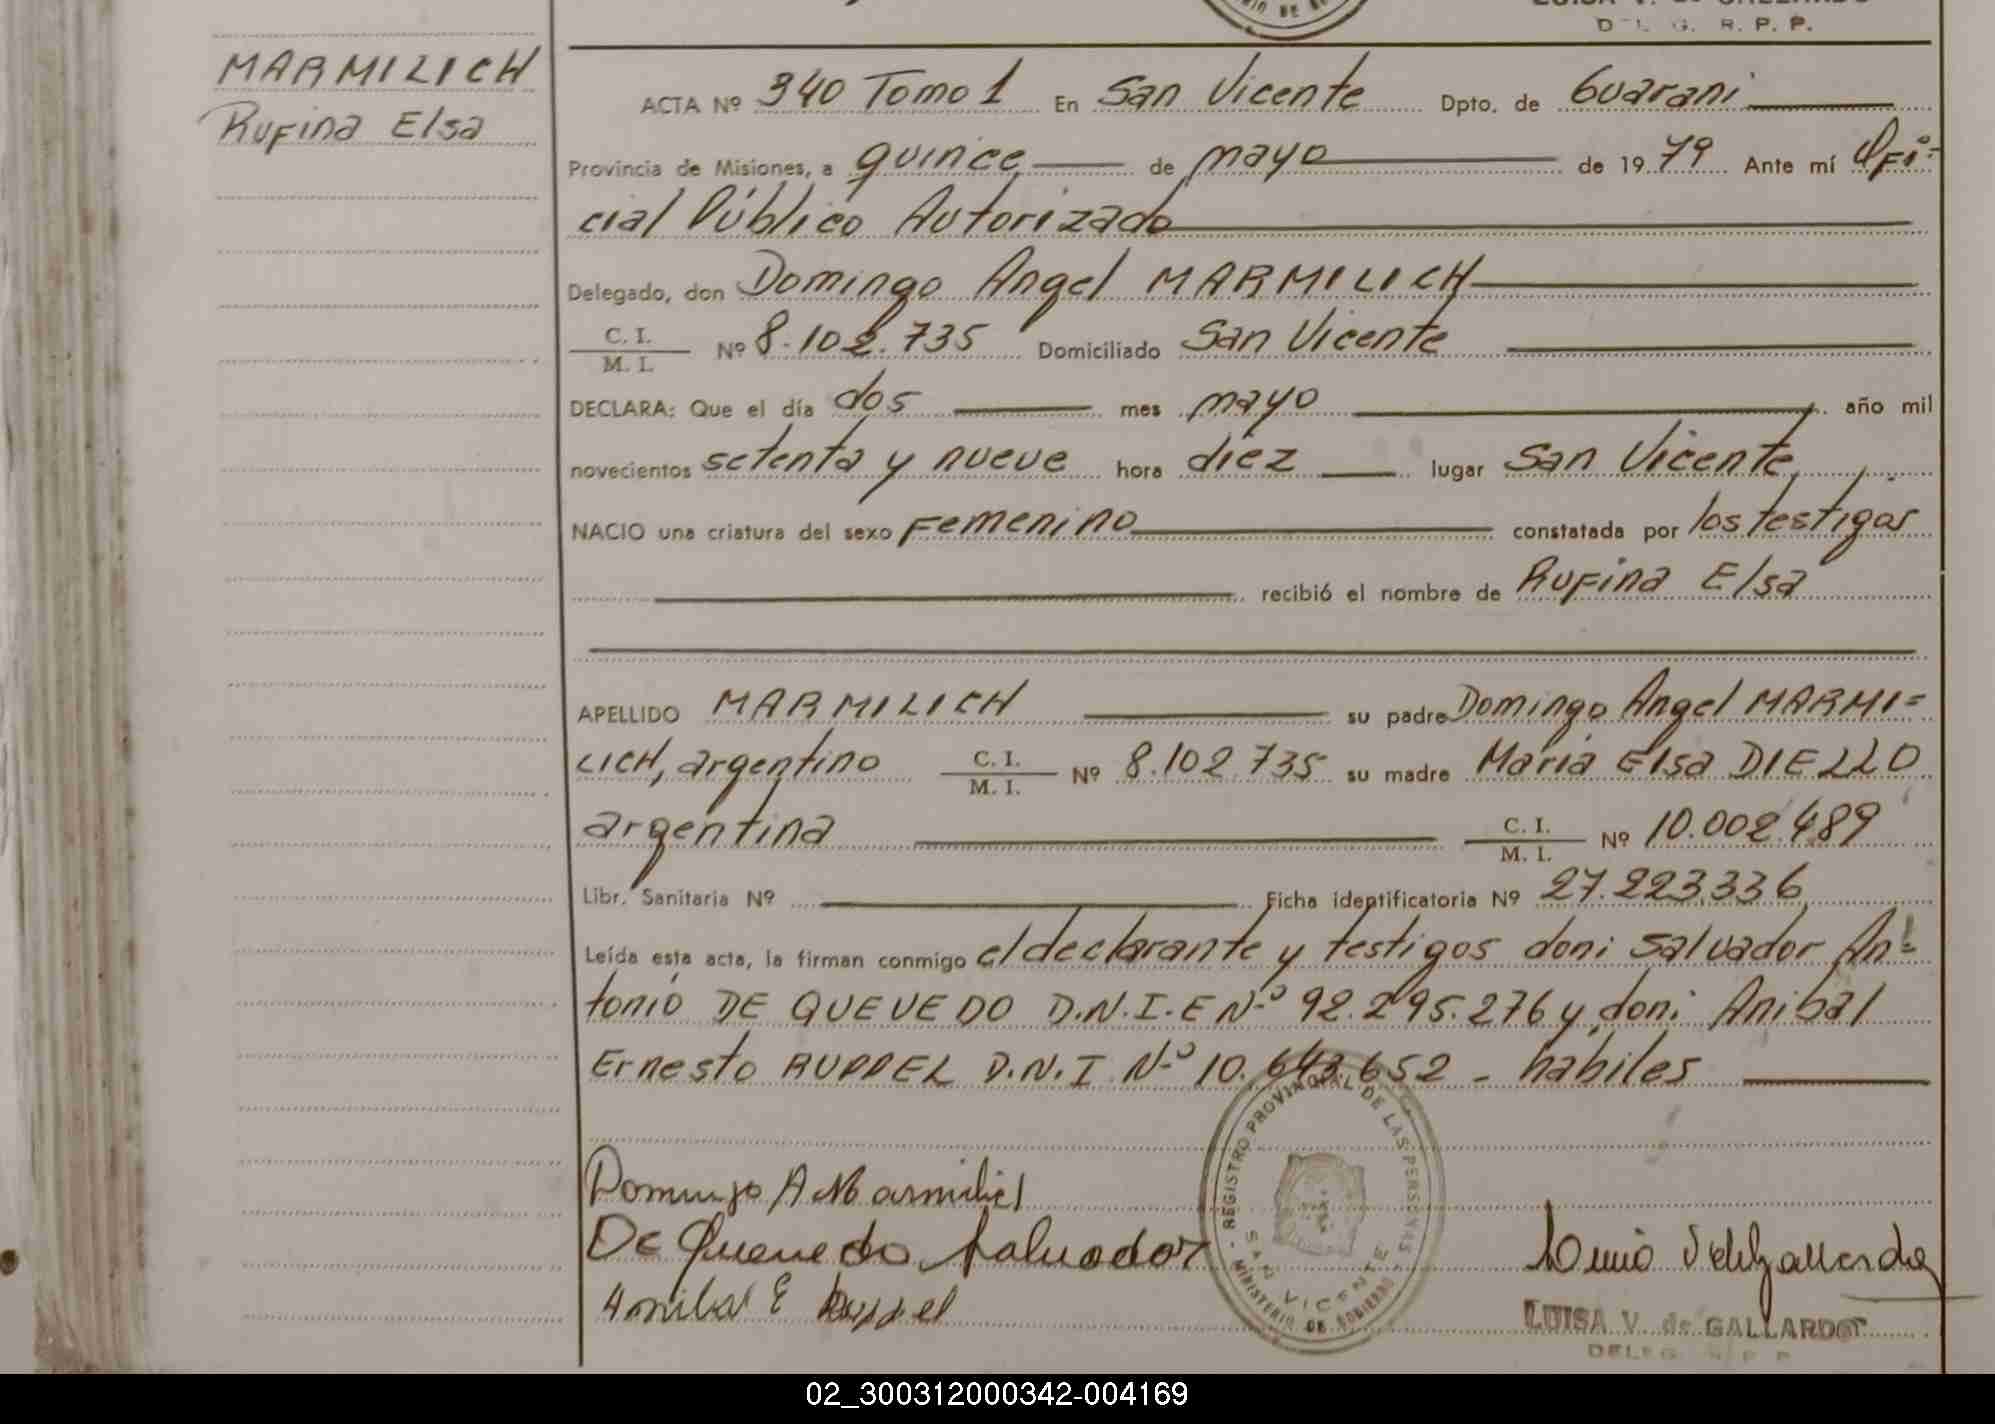 LUISA V. de GALLARDO
DEL G. R. P. P.
MARMILICH
Rufina Elsa
ACTA Nº 340 Tomo 1 En San Vicente Dpto. de Guarani
Provincia de Misiones, a quince de mayo de 1979 Ante mí Ofi-
cial Público Autorizado
Delegado, don Domingo Angel MARMILICH
C. I.
M. I. Nº 8.102.735 Domiciliado San Vicente
DECLARA: Que el día dos mes mayo año mil
novecientos setenta y nueve hora diez lugar San Vicente
NACIO una criatura del sexo Femenino constatada por los testigos
recibió el nombre de Rufina Elsa
APELLIDO MARMILICH su padre Domingo Angel MARMI=
LICH, argentino C. I. M. I. Nº 8.102.735 su madre María Elsa DIELLO
argentina C. I. M. I. Nº 10.002.489
Libr. Sanitaria Nº Ficha identificatoria Nº 27.223.336
Leída esta acta, la firman conmigo el declarante y testigos don: Salvador An=
tonio DE QUEVEDO D.N.I.E Nº 92.295.276 y don: Anibal
Ernesto RUPPEL D.N.I Nº 10.643.652 - hábiles
Domingo A Marmilich
De Quevedo Salvador
Anibal E Ruppel
REGISTRO PROVINCIAL DE LAS PERSONAS
SAN VICENTE
MINISTERIO DE GOBIERNO
LUISA V. de GALLARDO
DELEG. R. P. P.
02_300312000342-004169